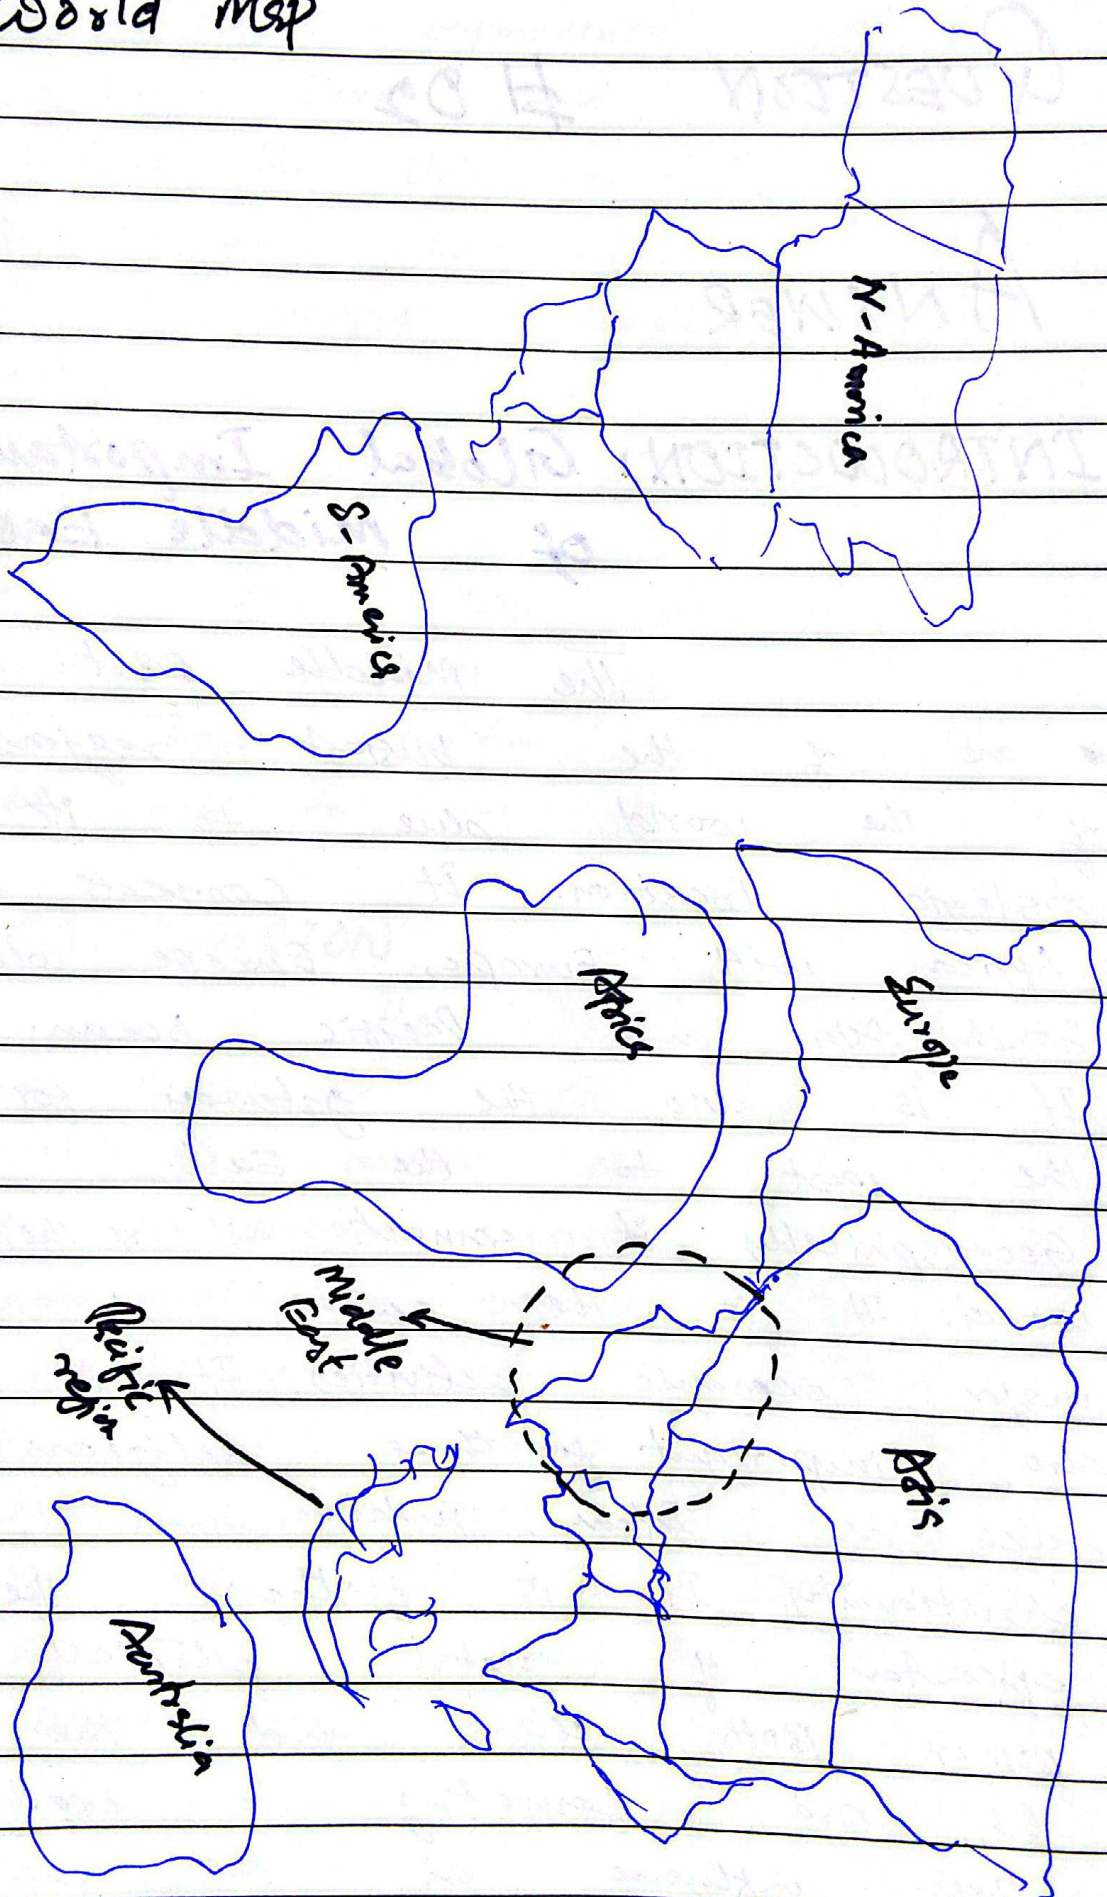 World Map
N-America
S-America
Europe
Africa
Asia
Middle
East
Pacific
region
Australia